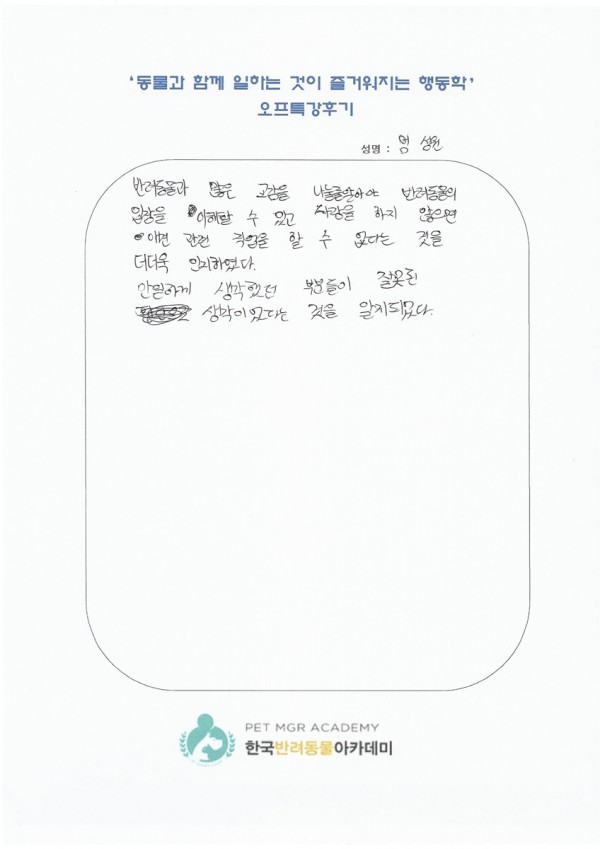 ‘동물과 함께 일하는 것이 즐거워지는 행동학’
오프특강후기
성명 : 엄 성원
반려동물과 많은 교감을 나눌줄알아야 반려동물의
입장을 이해할 수 있고 사랑을 하지 않으면
애견 관련 직업을 할 수 없다는 것을
더더욱 인지하였다.
안일하게 생각했던 부분들이 잘못된
생각이었다는 것을 알게되었다.
PET MGR ACADEMY
한국반려동물아카데미